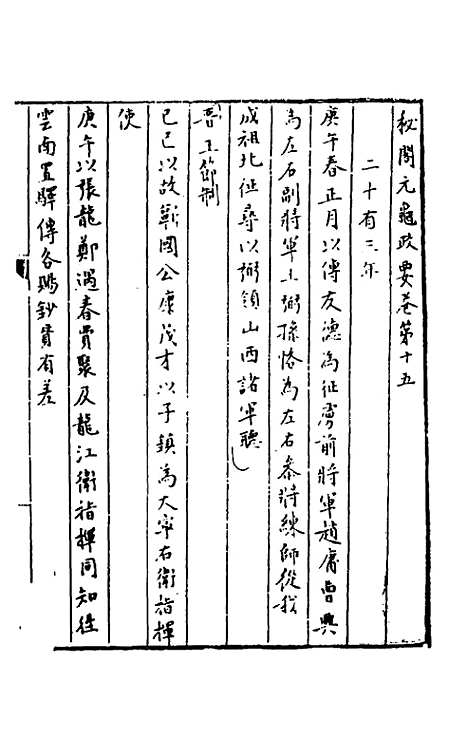 秘閣元龜政要卷第十五
二十有三年
庚午春正月以傅友德為征虜前將軍趙庸曹興
為左右副將軍王弼孫恪為左右叅將練師從我
成祖北征尋以弼領山西諸軍聽
晋王節制
己巳以故蘄國公康茂才以子鎮為大寧右衛指揮
使
庚午以張龍鄭遇春賁聚及龍江衛指揮同知徃
雲南置驛傳各賜鈔貫有差